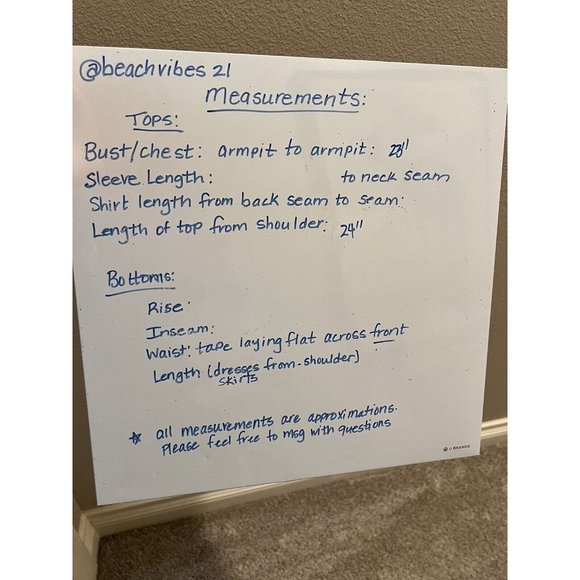 @beachvibes 21
Measurements:
Tops:
Bust/chest: armpit to armpit: 23"
Sleeve Length: to neck seam
Shirt length from back seam to seam:
Length of top from shoulder: 24"
Bottoms:
Rise:
Inseam:
Waist: tape laying flat across front
Length (dresses from-shoulder)
skirts
☆ all measurements are approximations.
Please feel free to msg with questions
U BRANDS